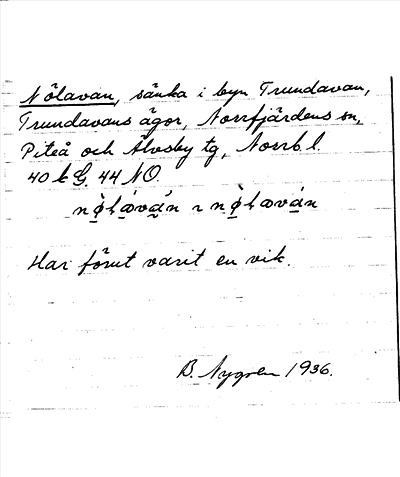 Nölavan, sänka i byn Trundavan,
Trundavans ägor, Norrfjärdens sn,
Piteå och Älvsby tg, Norrb. l.
40 k G. 44 NO.
Har förut varit en vik.
B. Nygren 1936.